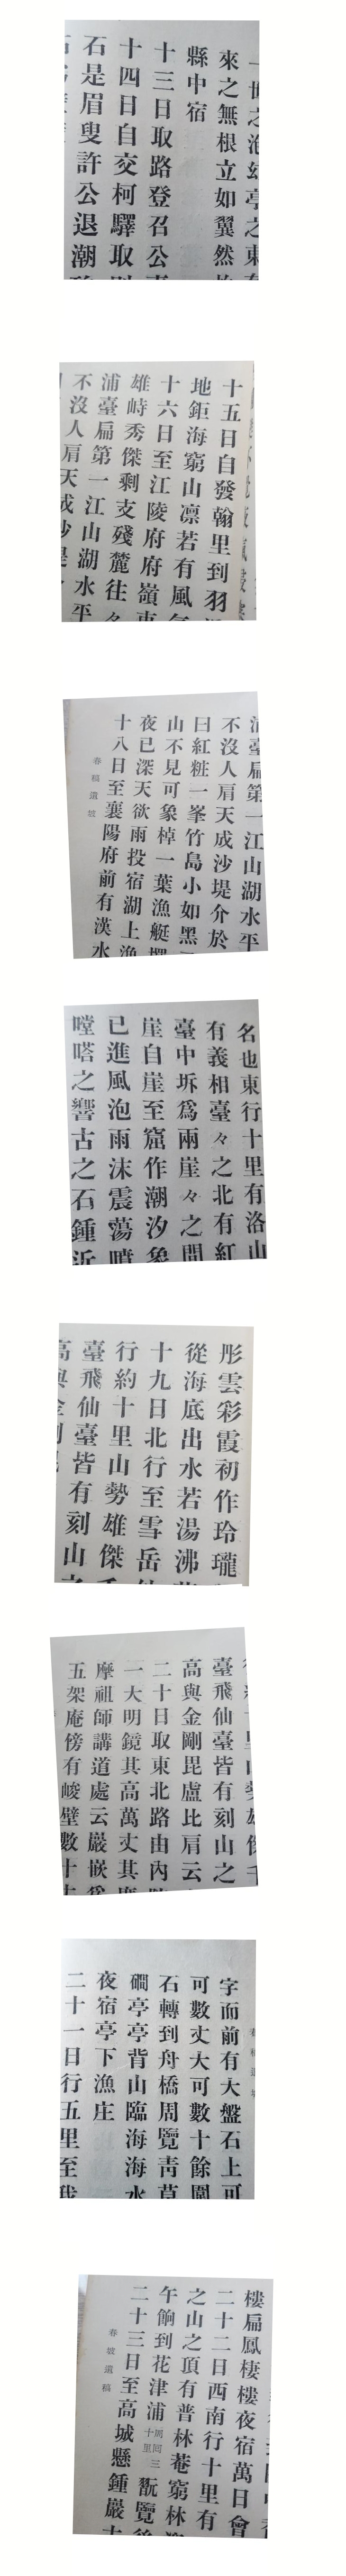 來之無根立如翼然
縣中宿
十三日取路登召公
十四日自交柯驛取
石是眉叟許公退潮
十五日自發翰里到羽
地鉅海窮山凛若有風
十六日至江陵府府嶺東
雄峙秀傑剩支殘麓往々
浦臺扁第一江山湖水平
不沒人肩天成沙
浦臺扁第一江山湖水平
不沒人肩天成沙堤介於
曰紅粧一峯竹島小如黑
山不見可象棹一葉漁艇
夜已深天欲雨投宿湖上漁
十八日至襄陽府前有漢水
春稿遺坡
名也東行十里有洛山
有義相臺々之北有紅
臺中坼爲兩崖々之間
崖自崖至窟作潮汐象
已進風泡雨沫震蕩噴
噌嗒之響古之石鍾近
彤雲彩霞初作玲瓏
從海底出水若湯沸
十九日北行至雪岳
行約十里山勢雄傑千
臺飛仙臺皆有刻山之
高與金剛
臺飛仙臺皆有刻山之
高與金剛毘盧比肩云
二十日取東北路由內
一大明鏡其高萬丈其
摩祖師講道處云巖嵌
五架庵傍有峻壁數十
字而前有大盤石上可
可數丈大可數十餘圍
石轉到舟橋周覽靑草
磵亭亭背山臨海海水
夜宿亭下漁庄
二十一日行五里至我
樓扁鳳棲樓夜宿萬日會
二十二日西南行十里有
之山之頂有普林菴窮林
午餉到花津浦周回三十里翫覽
二十三日至高城懸鍾巖
春坡遺稿